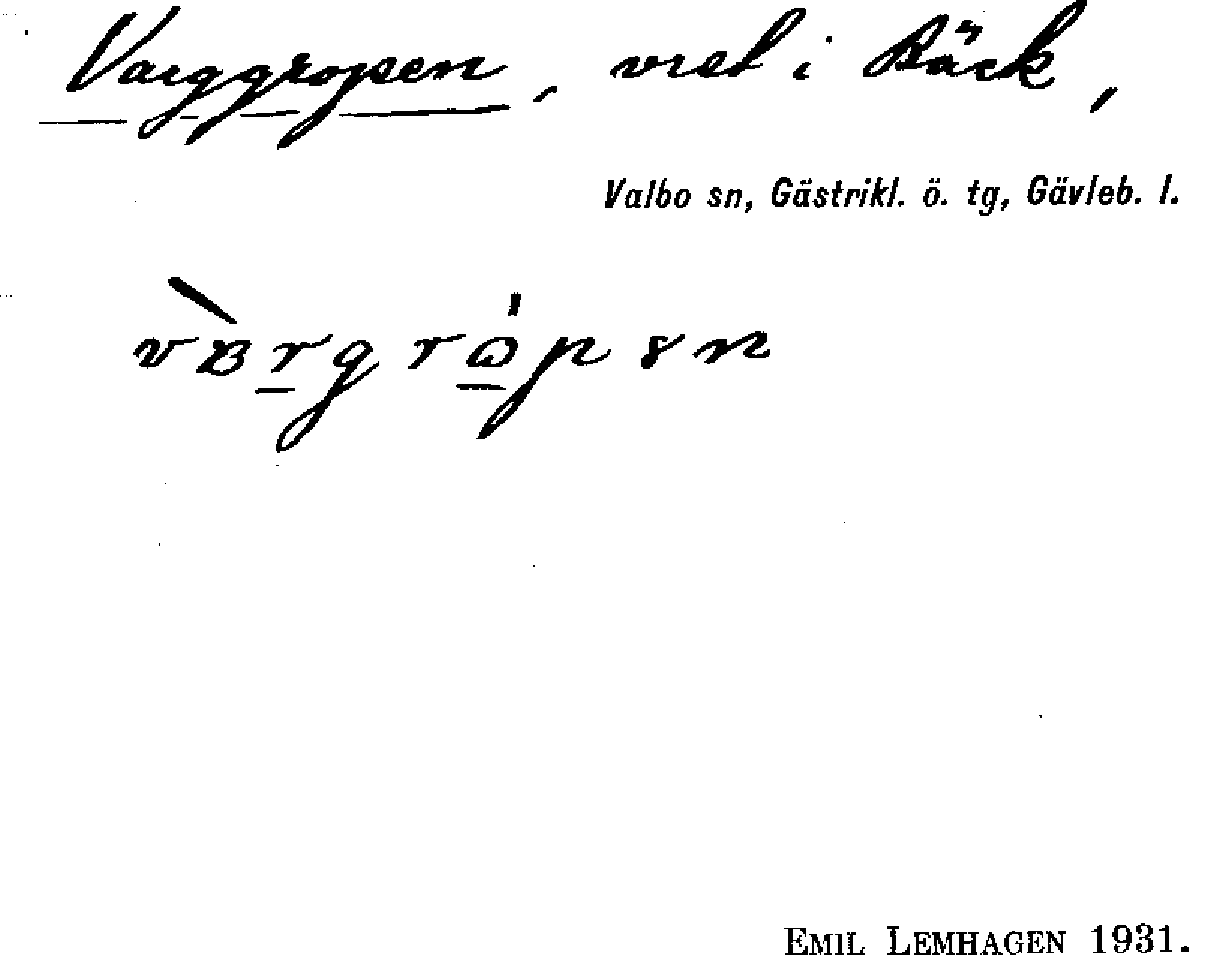 Varggropen, vret i Bäck,
Valbo sn, Gästrikl. ö. tg, Gävleb. l.
EMIL LEMHAGEN 1931.